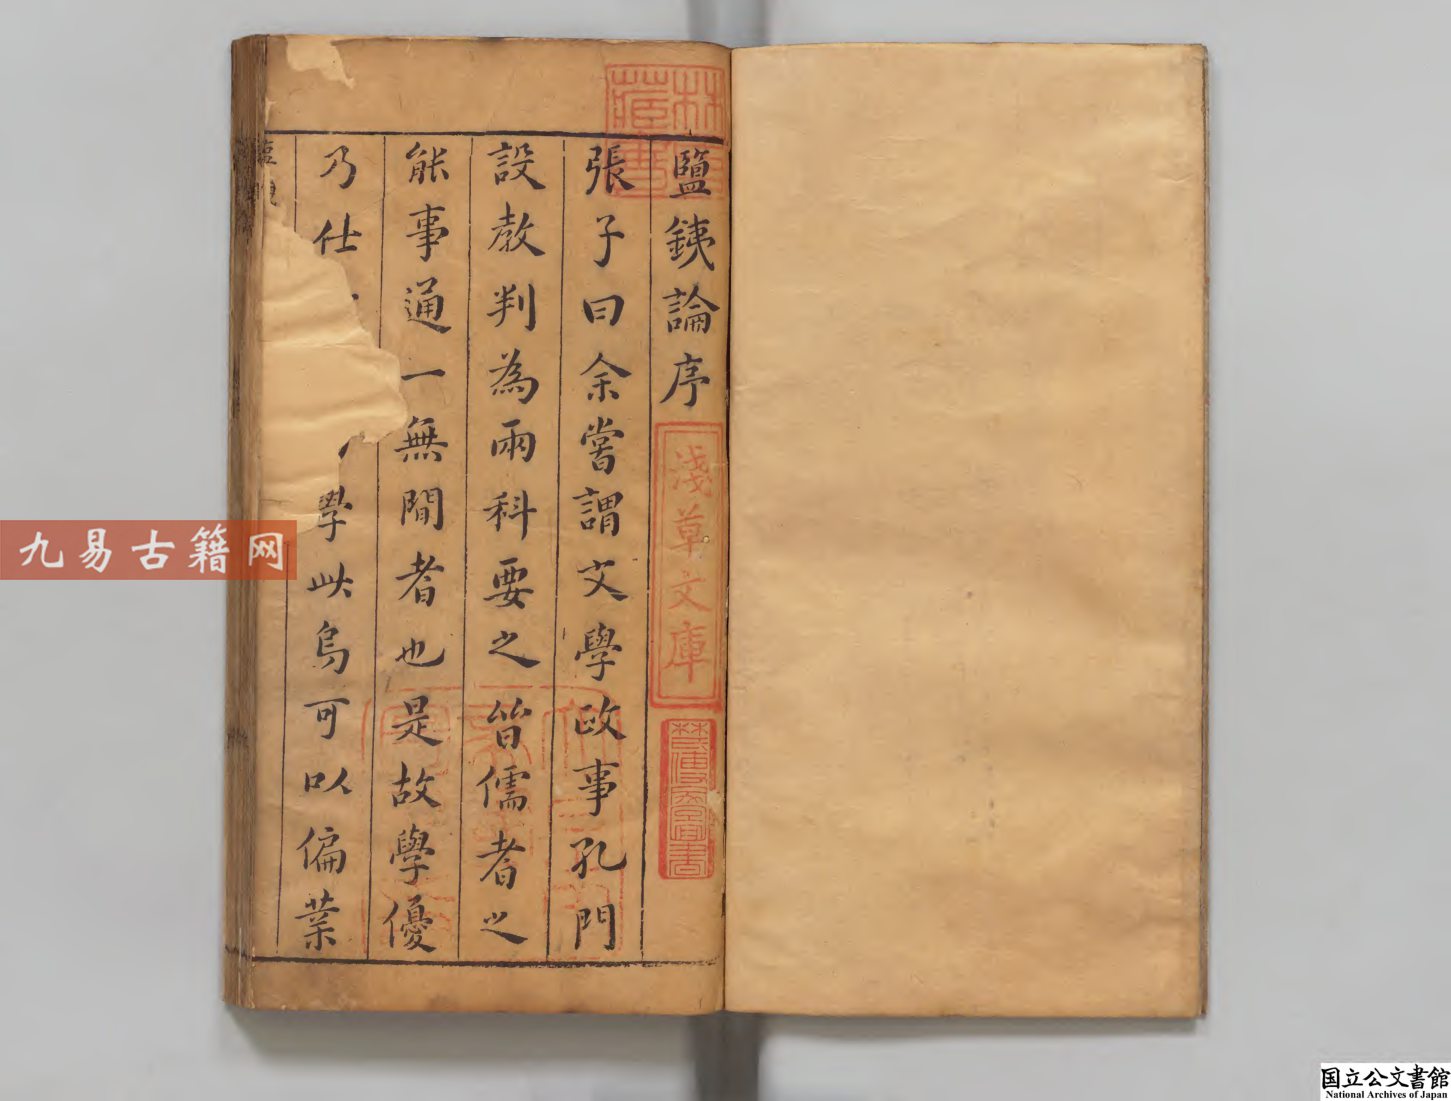 鹽鐵論序
張子曰余嘗謂文學政事孔門
設教判為兩科要之皆儒者之
能事通一無間者也是故學優
乃仕
學此烏可以偏業
林氏
藏書
淺草文庫
九易古籍网
国立公文書館
National Archives of Japan